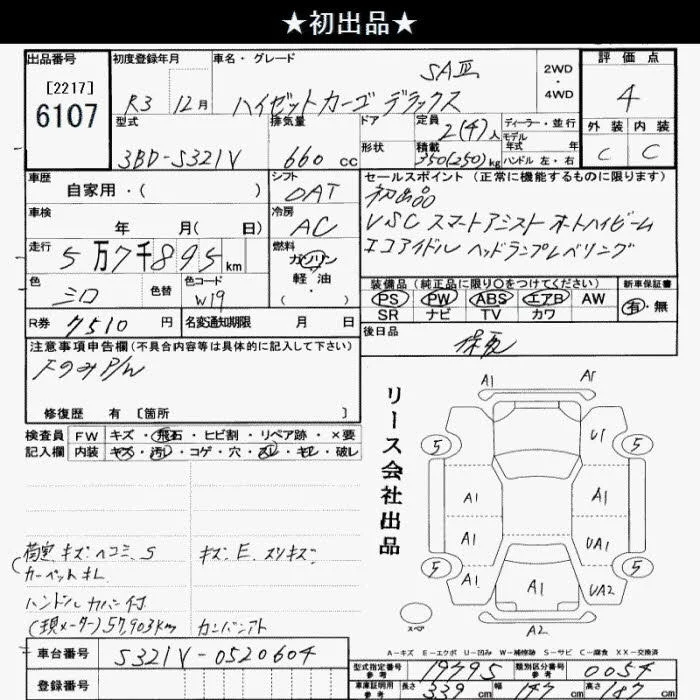 ★初出品★
出品番号
[2217]
6107
初度登録年月
R3 12月
車名・グレード
SAⅢ
ハイゼットカーゴ デラックス
2WD
・
4WD
評価点
4
外装 内装
C C
型式
3BD-S321V
排気量
660 cc
ドア
形状
定員
2(4)人
積載
350(250)kg
ディーラー・並行
モデル
年式 年
ハンドル 左・右
車歴
自家用・( )
シフト
OAT
セールスポイント(正常に機能するものに限ります)
初出品
VSC スマートアシスト オートハイビーム
エコアイドル ヘッドランプレベリング
車検
年 月( 日)
冷房
AC
走行
5万7千895km
燃料
ガソリン
軽油
( ・ )
色
シロ
色替
色コード
W19
装備品(純正品に限り○をつけてください)
PS PW ABS エアB AW
SR ナビ TV カワ
新車保証書
有・無
R券 7510 円
名変通知期限 月 日
後日品
保、取
注意事項申告欄(不具合内容等は具体的に記入して下さい)
修復歴 有 [箇所 ]
検査員
記入欄
FW キズ・飛石・ヒビ割・リペア跡・×要
内装 キズ・汚レ・コゲ・穴・スレ・キレ・破レ
荷室 キズ、ヘコミ、S
カーペットキレ
ハンドルカバー付
(現メーター)57,903km
キズ、E、スリキズ
カンバンアト
リース会社出品
A1 A1
5 U1 5
A1 A1
A1 UA1
5 A1 A1 UA2 5
スペア
A2
A-キズ E-エクボ U-凹み W-補修跡 S-サビ C-腐食 XX-交換済
車台番号 S321V-0520604
登録番号
型式指定番号
参考
19795
類別区分番号
参考
0054
車庫証明用
参考
長さ 339 cm 幅 147 cm 高さ 187 cm